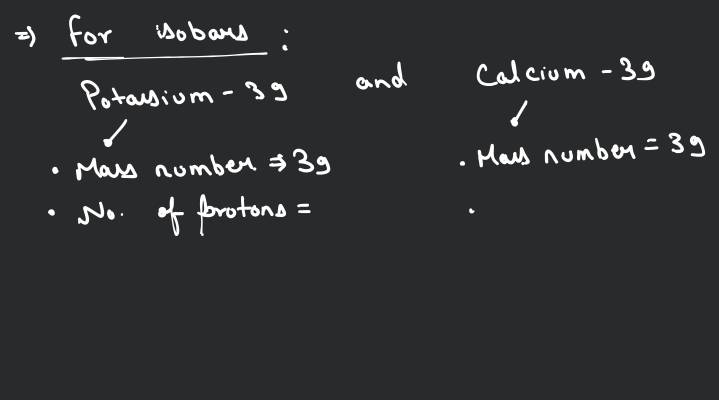 ⇒ for isobars :
Potassium - 39 and Calcium - 39
• Mass number ⇒ 39 • Mass number = 39
• No. of protons = •